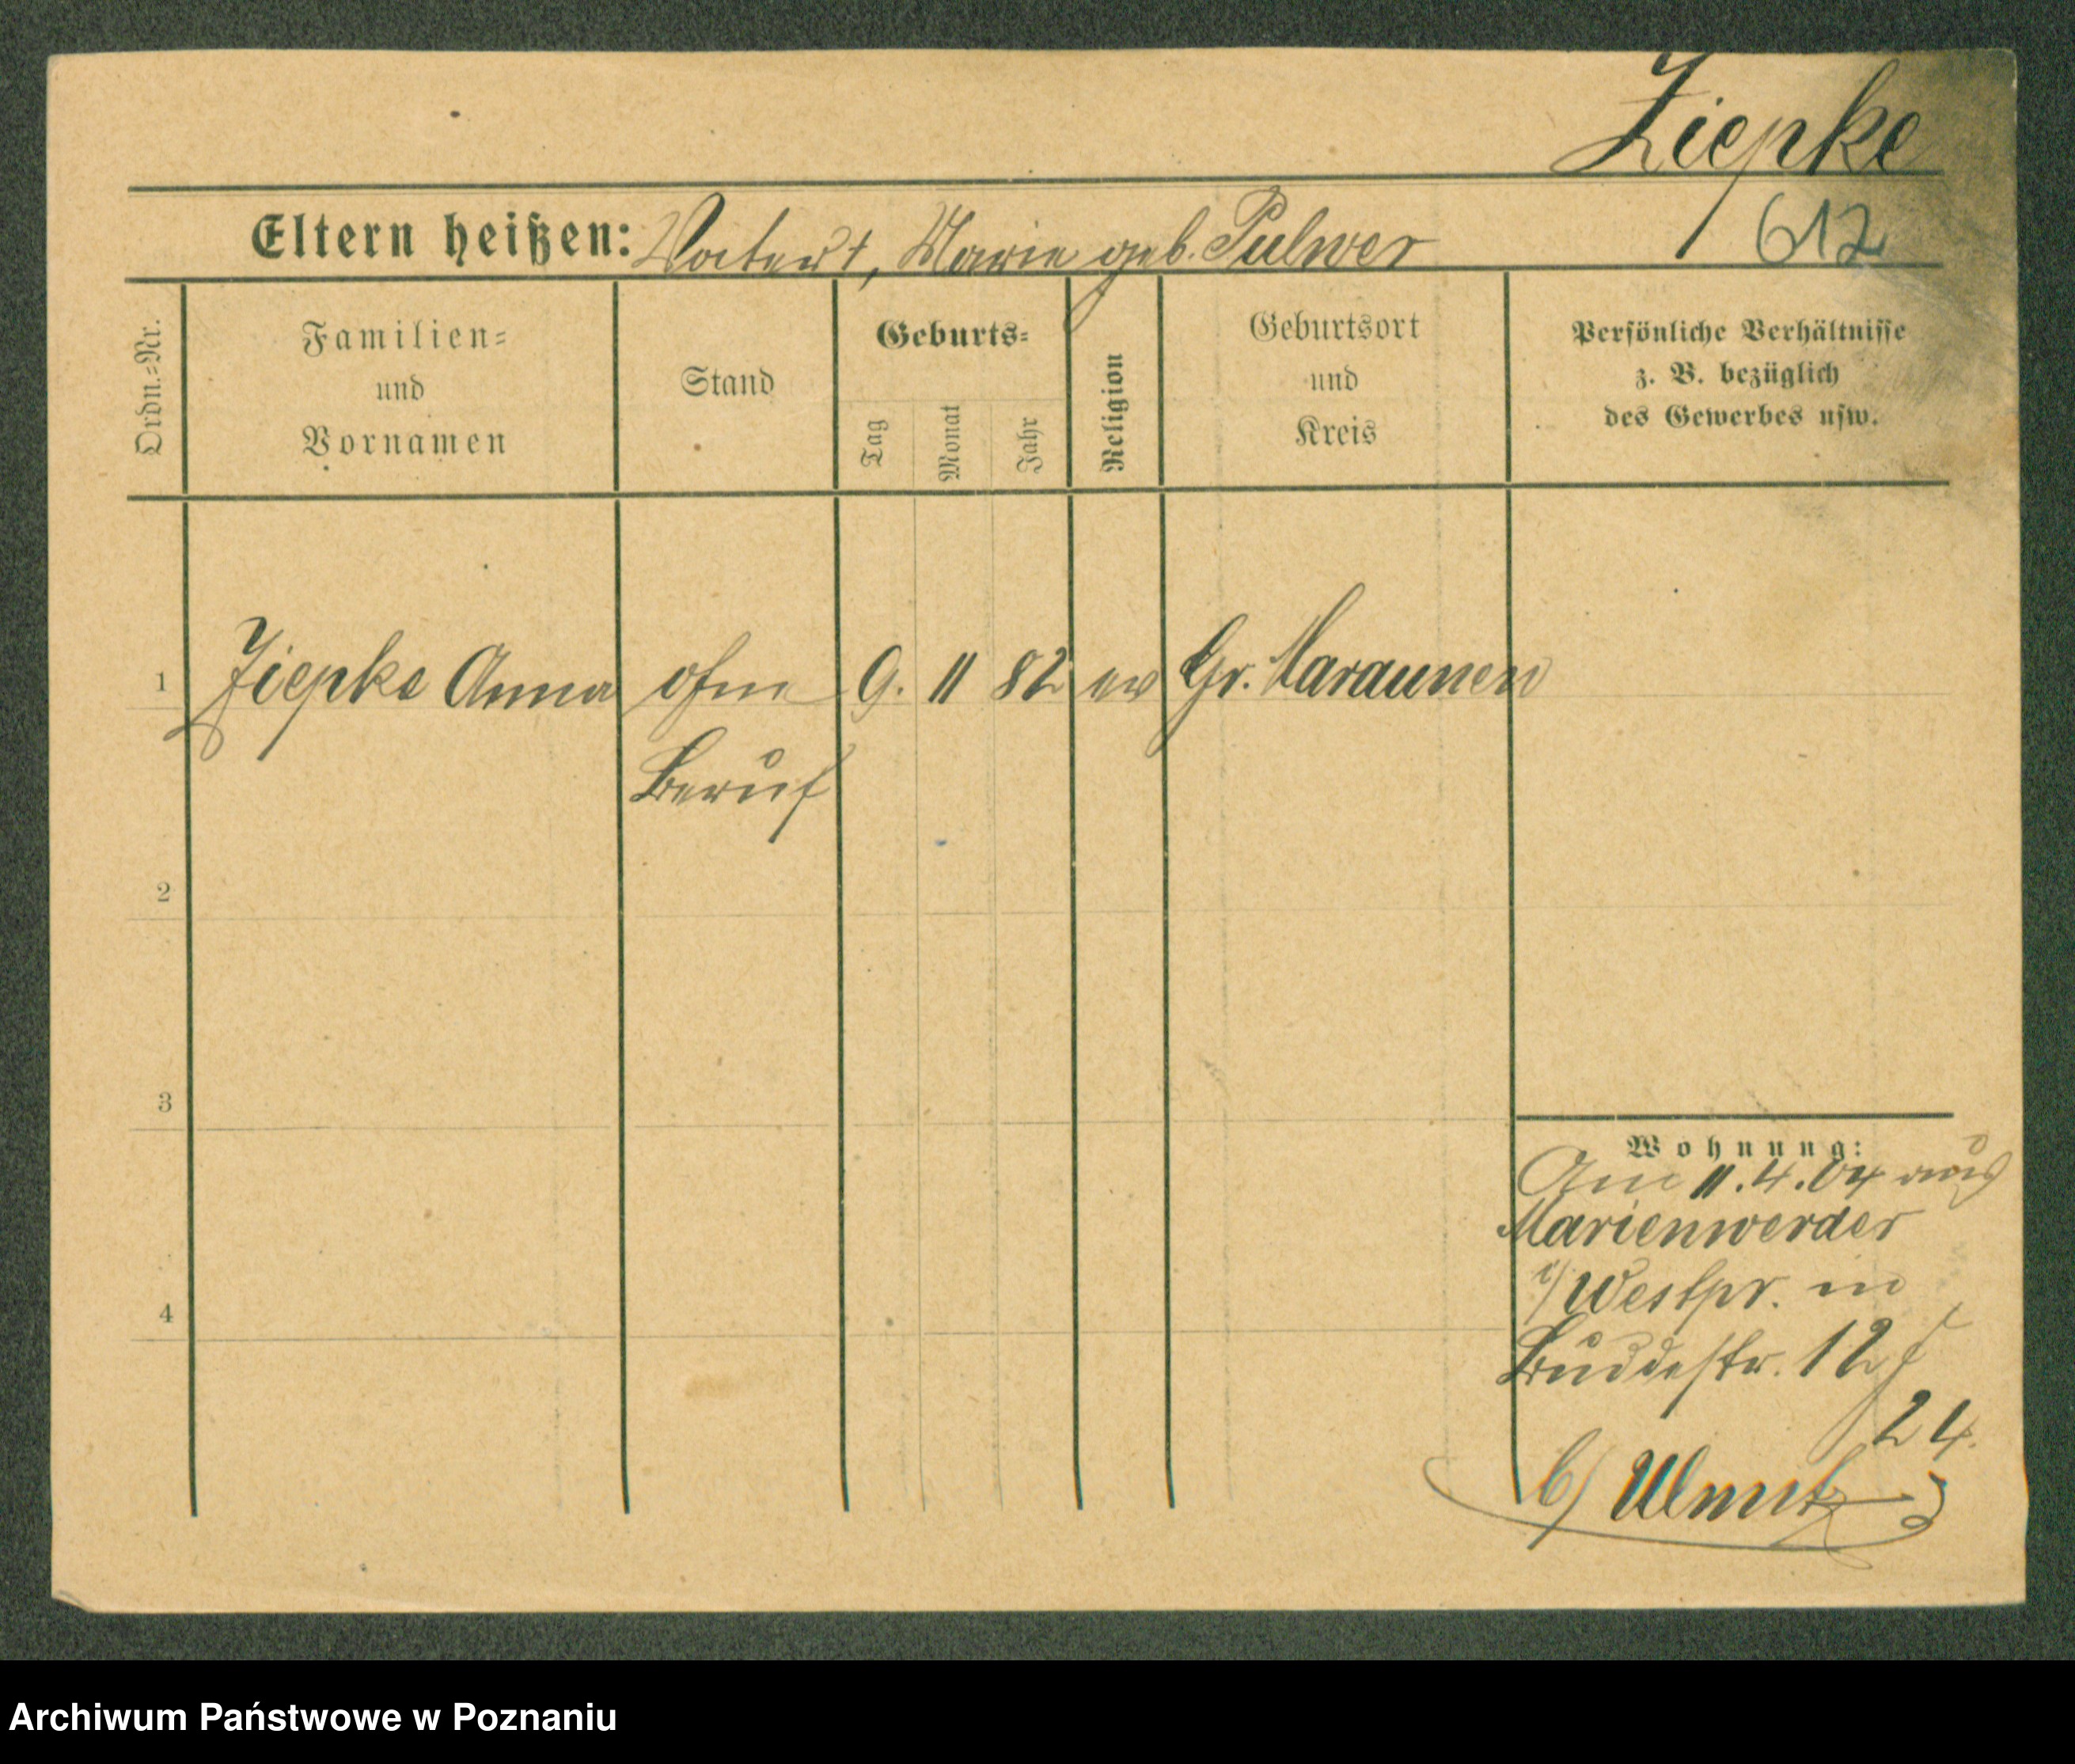 Ziepke
612
Eltern heißen: Vater †, Marie geb. Pulwer
Ordn.=Nr.
Familien=
und
Vornamen
Stand
Geburts=
Tag
Monat
Jahr
Religion
Geburtsort
und
Kreis
Persönliche Verhältnisse
z. B. bezüglich
des Gewerbes usw.
1 Ziepke Anna ohne 9. 11 82 ev Gr. Maraunen
Beruf
2
3
4
Wohnung:
Am 11.4.04 aus
Marienwerder
i/ Westpr. in
Buddestr. 12
24.
b/ Ulmutz
Archiwum Państwowe w Poznaniu